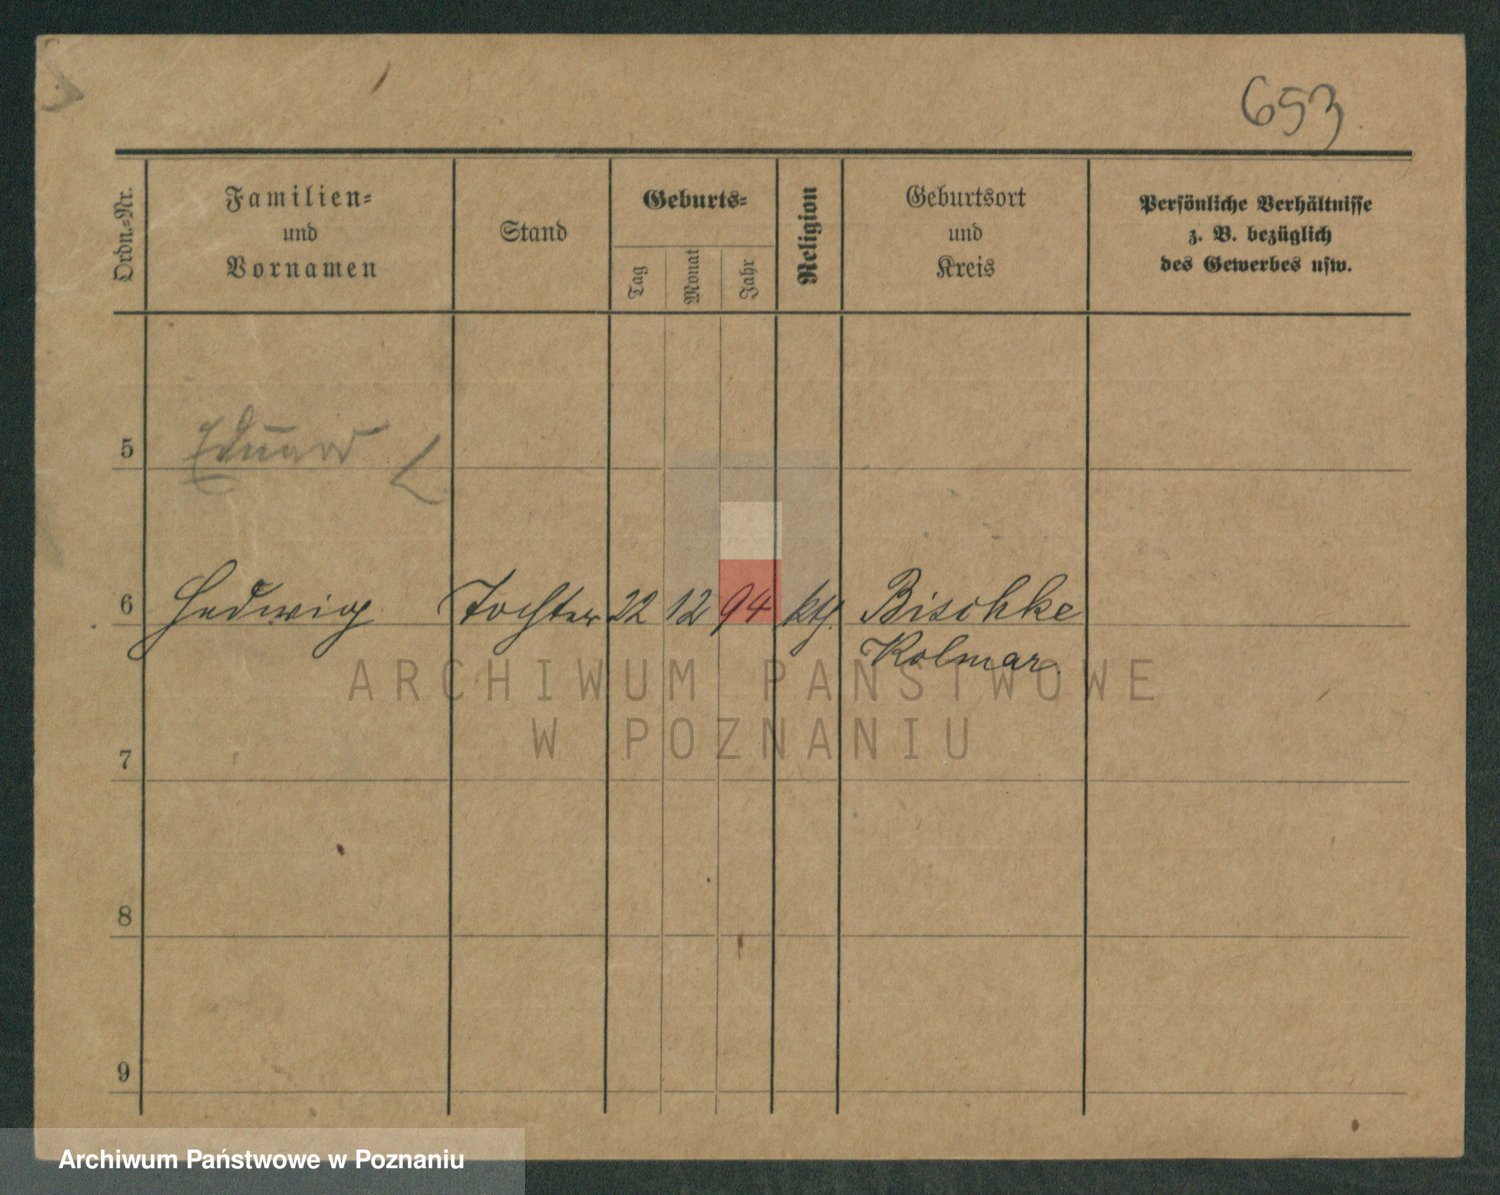 653
Ordn.-Nr.
Familien-
und
Vornamen
Stand
Geburts-
Tag
Monat
Jahr
Religion
Geburtsort
und
Kreis
Persönliche Verhältnisse
z. B. bezüglich
des Gewerbes usw.
5 Eduard
6 Hedwig Tochter 22 12 94 kth. Bischke
Kolmar.
ARCHIWUM PAŃSTWOWE
W POZNANIU
7
8
9
Archiwum Państwowe w Poznaniu